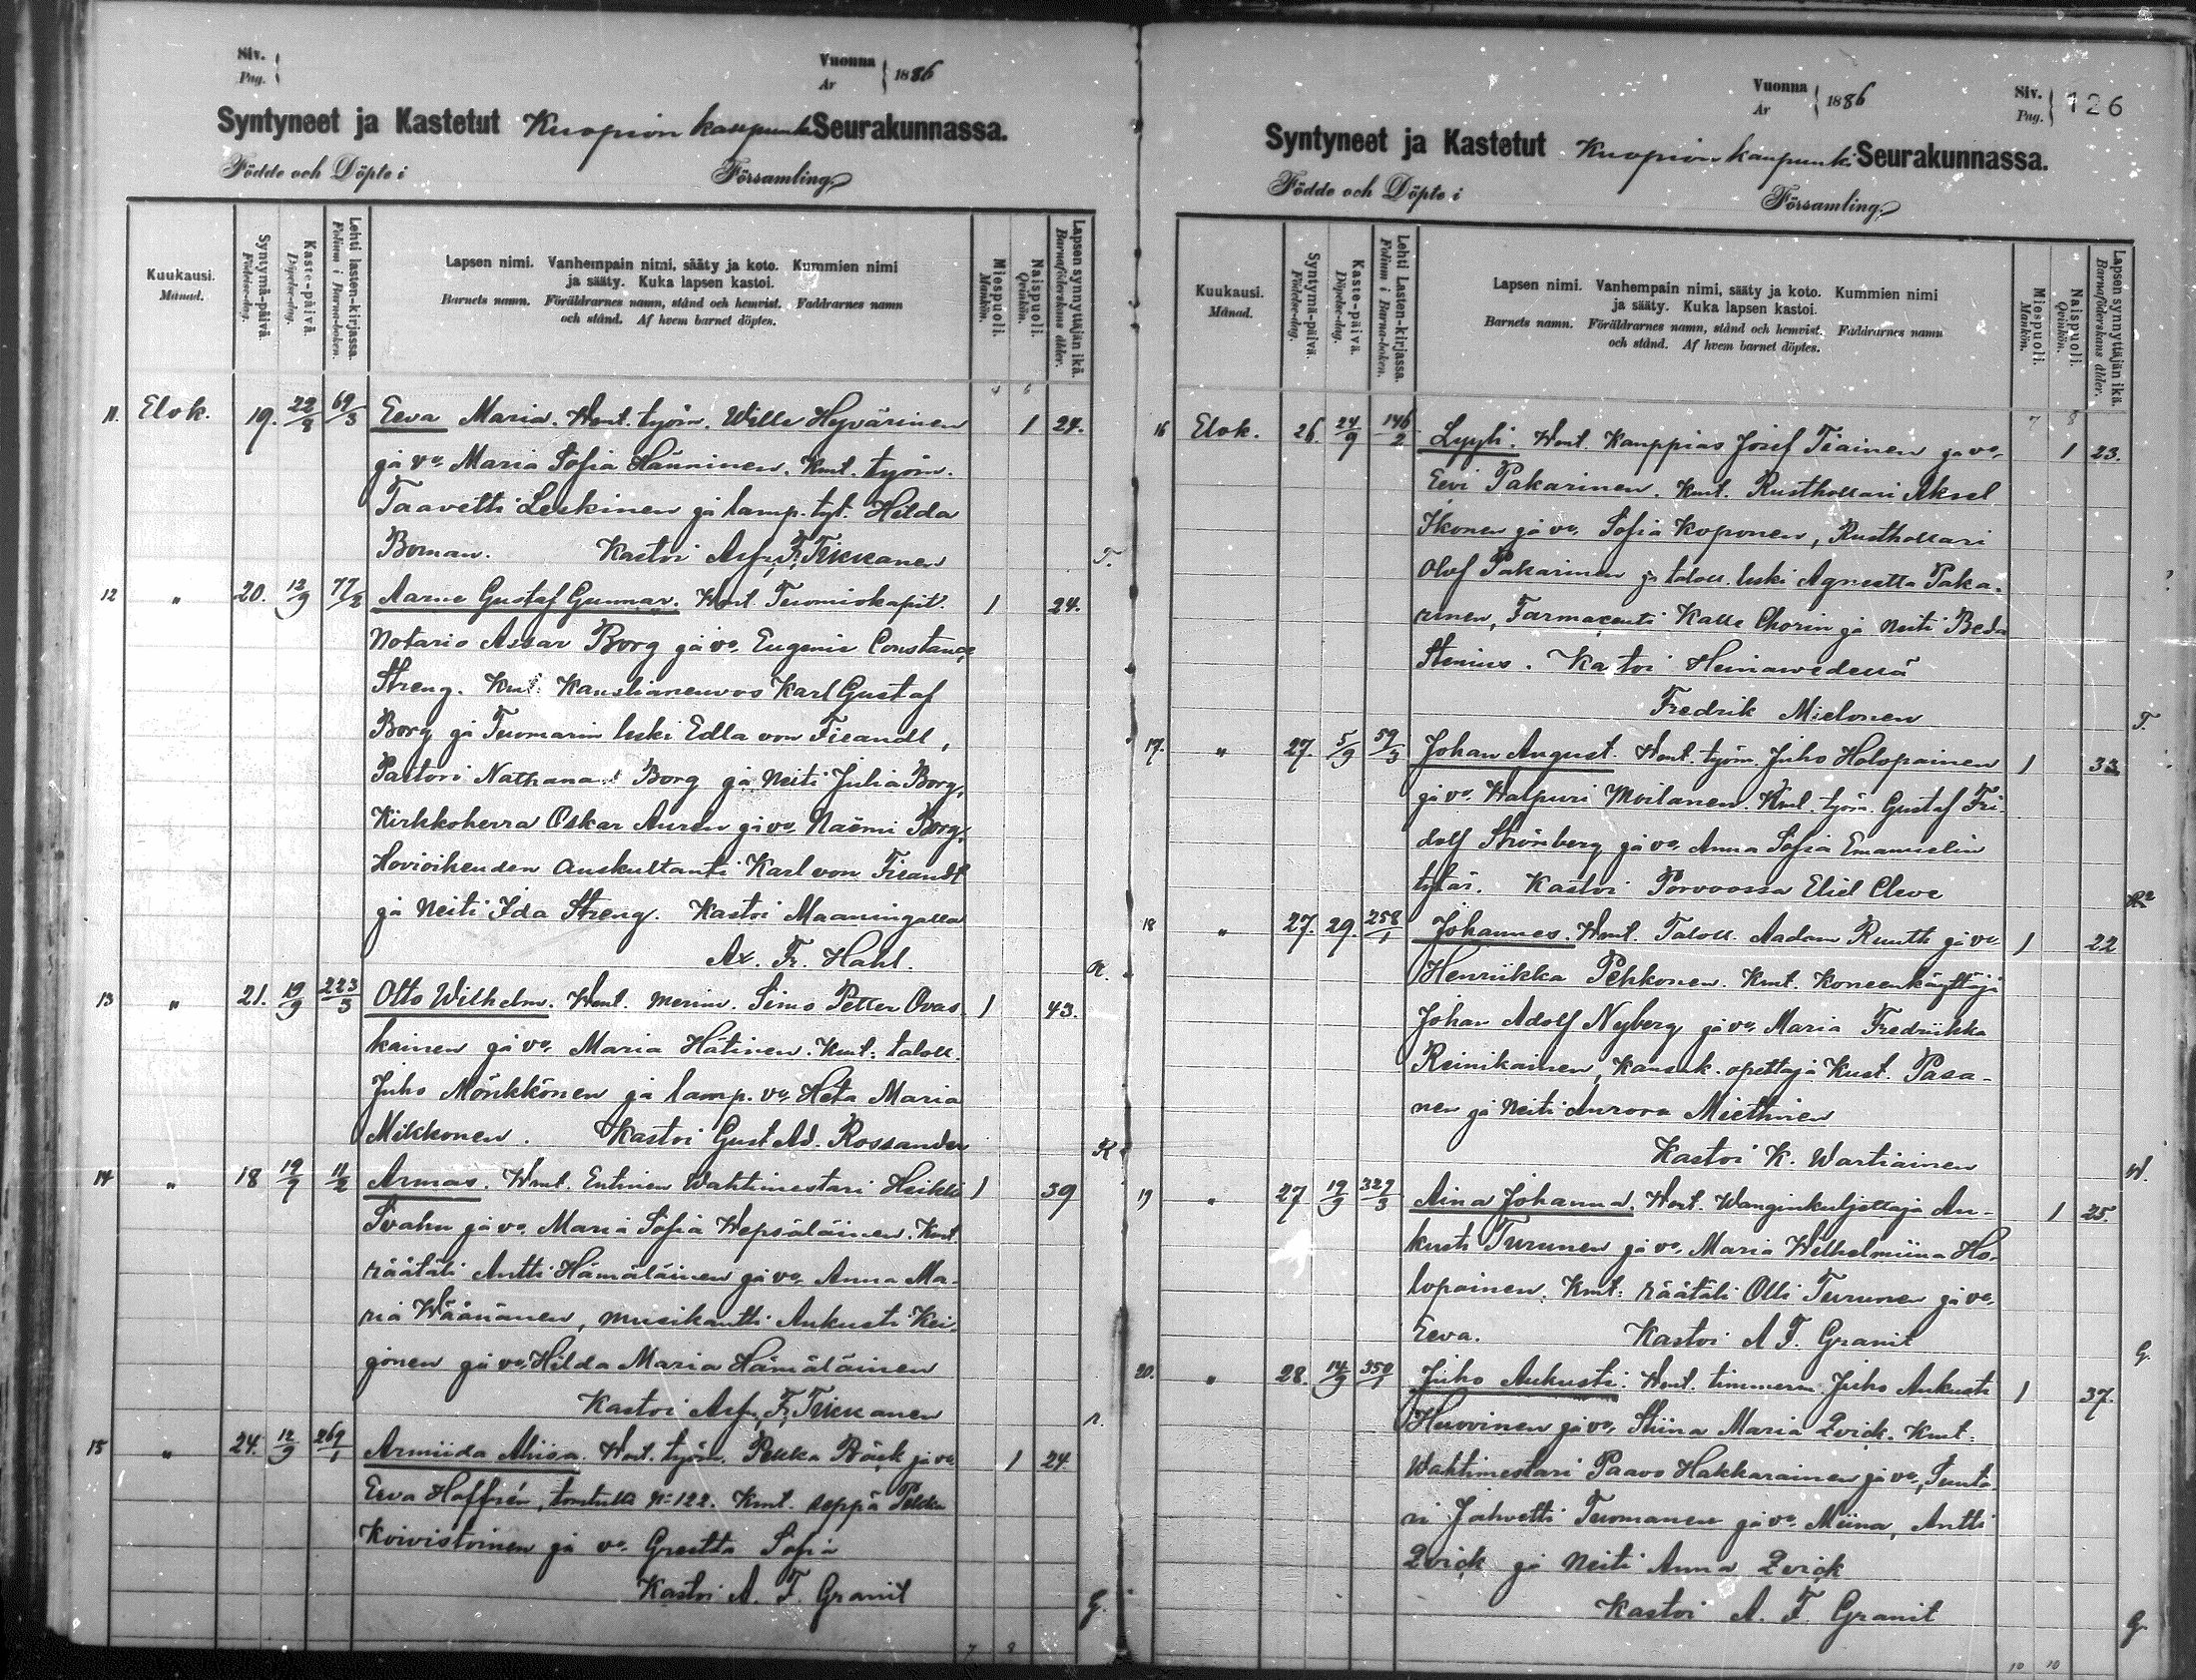 Siv.
Pag.
Vuonna
År
1886
Syntyneet ja Kastetut Kuopion kaupunki Seurakunnassa.
Födde och Döpte i Församling.
Kuukausi.
Månad.
Syntymä-päivä.
Födelse-dag.
Kaste-päivä.
Döpelse-dag.
Lehti lasten-kirjassa.
Folium i Barna-boken.
Lapsen nimi. Vanhempain nimi, sääty ja koto. Kummien nimi
ja sääty. Kuka lapsen kastoi.
Barnets namn. Föräldrarnes namn, stånd och hemvist. Faddrarnes namn
och stånd. Af hvem barnet döptes.
Miespuoli.
Mankön.
Naispuoli.
Qvinkön.
Lapsen synnyttäjän ikä.
Barnaföderskans ålder.
11. Elok. 19. 22/8 69/3 Eeva Maria. Wmt. työm. Wille Hyvärinen 1 24.
ja vo. Maria Sofia Hänninen. Kmt. työm.
Taavetti Leskinen ja lamp. tyt. Hilda
Boman. Kastoi Asfr. Fr. Tikkanen T.
12 " 20. 12/9 77/2 Aarne Gustaf Gunnar. Wmt Tuomiokapit. 1 24.
Notario Assar Borg ja vo. Eugenie Constance
Streng. Kmt. Kanslianeuvos Karl Gustaf
Borg ja Tuomarin leski Edla von Fieandt,
Pastori Nathanael Borg ja Neiti Julia Borg,
Kirkkoherra Oskar Auren ja vo. Naëmi Borg,
Hovioikeuden Auskultanti Karl von Fieandt
ja Neiti Ida Streng. Kastoi Maaningalla
Ax. Fr. Hahl. R.
13 " 21. 19/9 223/3 Otto Wilhelm. Wmt. merim. Simo Petter Ovas- 1 43.
kainen ja vo. Maria Hätinen. Kmt. taloll.
Juho Mönkkönen ja lamp. vo. Heta Maria
Mikkonen. Kastoi Gust Ad. Rossander R
14 " 18 19/9 11/2 Armas. Wmt. Entinen Wahtimestari Heikki 1 39
Svahn ja vo. Maria Sofia Wepsäläinen. Kmt.
räätäli Antti Hämäläinen ja vo. Anna Ma-
ria Wäänänen, musikantti Aukusti Kei-
jonen ja vo. Hilda Maria Hämäläinen
Kastoi Asfr. Fr. Tikkanen
15 " 24. 12/9 269/1 Armiida Miisa. Wmt. työm. Pekka Bäck ja vo 1 24
Eeva Hoffrén, tontilla No 122. Kmt. seppä Pekka
Koivistoinen ja vo. Greetta Sofia
Kastoi A. F. Granit G.
Vuonna
År
1886
Siv.
Pag.
126
Syntyneet ja Kastetut Kuopion kaupunki Seurakunnassa.
Födde och Döpte i Församling.
Kuukausi.
Månad.
Syntymä-päivä.
Födelse-dag.
Kaste-päivä.
Döpelse-dag.
Lehti Lasten-kirjassa.
Folium i Barna-boken.
Lapsen nimi. Vanhempain nimi, sääty ja koto. Kummien nimi
ja sääty. Kuka lapsen kastoi.
Barnets namn. Föräldrarnes namn, stånd och hemvist. Faddrarnes namn
och stånd. Af hvem barnet döptes.
Miespuoli.
Mankön.
Naispuoli.
Qvinkön.
Lapsen synnyttäjän ikä.
Barnaföderskans ålder.
16 Elok. 26. 24/9 146/2 Lyyli. Wmt. Kauppias Josef Tiainen ja vo. 1 23.
Eevi Pakarinen. Kmt. Rusthollari Aksel
Ikonen ja vo. Sofia Koponen, Rusthollari
Olof Pakarinen ja taloll. leski Agneetta Paka-
rinen, Farmaseuti Kalle Chorin ja Neiti Beda
Stenius. Kastoi Heinawedellä
Fredrik Mielonen T.
17. " 27. 5/9 59/3 Johan August. Wmt. työm. Juho Holopainen 1 33
ja vo. Walpuri Moilanen. Kmt. työm. Gustaf Fri-
dolf Strömberg ja vo. Anna Sofia Emanuelin
tytär. Kastoi Porvoossa Eliel Cleve
18 " 27. 29. 258/1 Johannes. Wmt. Taloll. Aadam Ruuth ja vo. 1 22
Henriikka Pehkonen. Kmt. Koneenkäyttäjä
Johan Adolf Nyberg ja vo. Maria Fredriikka
Reinikainen, Kansak. opettaja Kust. Pasa-
nen ja Neiti Aurora Miettinen
Kastoi K. Wartiainen W.
19 " 27 19/9 329/3 Aina Johanna. Wmt. Wanginkuljettaja Au- 1 25.
kusti Turunen ja vo. Maria Wilhelmiina Ho-
lopainen. Kmt: räätäli Olli Turunen ja vo.
Eeva. Kastoi A F. Granit G.
20. " 28. 14/9 359/1 Juho Aukusti. Wmt. timmerm. Juho Aukusti 1 37.
Huovinen ja vo. Stiina Maria Qvick. Kmt:
Wahtimestari Paavo Hakkarainen ja vo., Sunta-
ri Jahvetti Tuomanen ja vo. Miina, Antti
Qvick ja Neiti Anna Qvick
Kastoi A. F. Granit G.